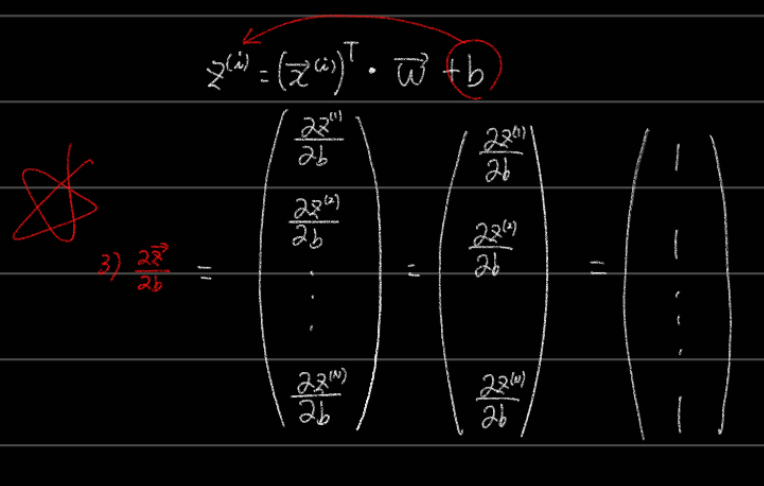 z⁽ⁱ⁾ = (x⃗⁽ⁱ⁾)ᵀ · w⃗ + b
3) ∂z⃗/∂b = (∂z⁽¹⁾/∂b ∂z⁽²⁾/∂b ⋮ ∂z⁽ᴺ⁾/∂b) = (∂z⁽¹⁾/∂b ∂z⁽²⁾/∂b ∂z⁽ᴺ⁾/∂b) = (1 1 ⋮ 1)